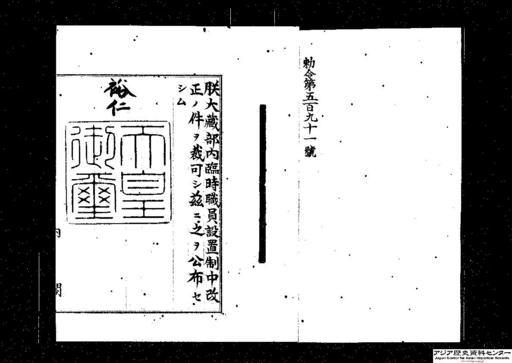 勅令第五百九十一號
朕大藏部内臨時職員設置制中改
正ノ件ヲ裁可シ茲ニ之ヲ公布セ
シム
裕仁
天皇
御璽
内閣
アジア歴史資料センター
Japan Center for Asian Historical Records